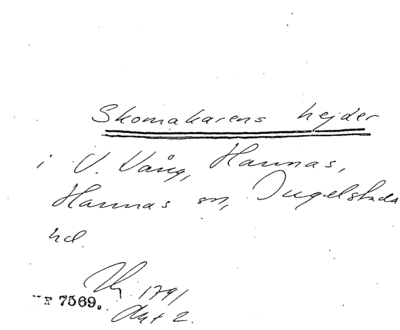 Skomakarens hejder
i V. Vång, Hannas,
Hannas sn, Ingelstads
hd.
1791
F 7569. Akt 2.